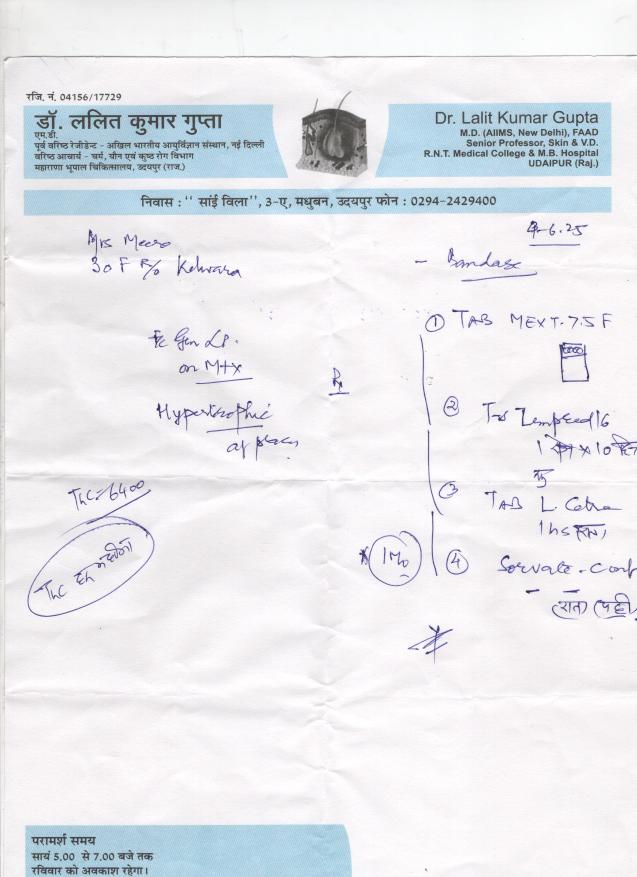 रजि. नं. 04156/17729
डॉ. ललित कुमार गुप्ता
एम.डी.
पूर्व वरिष्ठ रेजीडेन्ट - अखिल भारतीय आयुर्विज्ञान संस्थान, नई दिल्ली
वरिष्ठ आचार्य - चर्म, यौन एवं कुष्ठ रोग विभाग
महाराणा भूपाल चिकित्सालय, उदयपुर (राज.)
Dr. Lalit Kumar Gupta
M.D. (AIIMS, New Delhi), FAAD
Senior Professor, Skin & V.D.
R.N.T. Medical College & M.B. Hospital
UDAIPUR (Raj.)
निवास : '' सांई विला'', 3-ए, मधुबन, उदयपुर फोन : 0294-2429400
-6.25
Mrs Meera
30 F R/o Kelwara
- Bandage
Gen LP.
on Mtx
Hypertrophic
Rx
① TAB MEXT. 7.5
②
1 x 10
③ TAB L. Cetra
1 hs
④
TLC = 6400
TLC हर महीना
परामर्श समय
सायं 5.00 से 7.00 बजे तक
रविवार को अवकाश रहेगा।